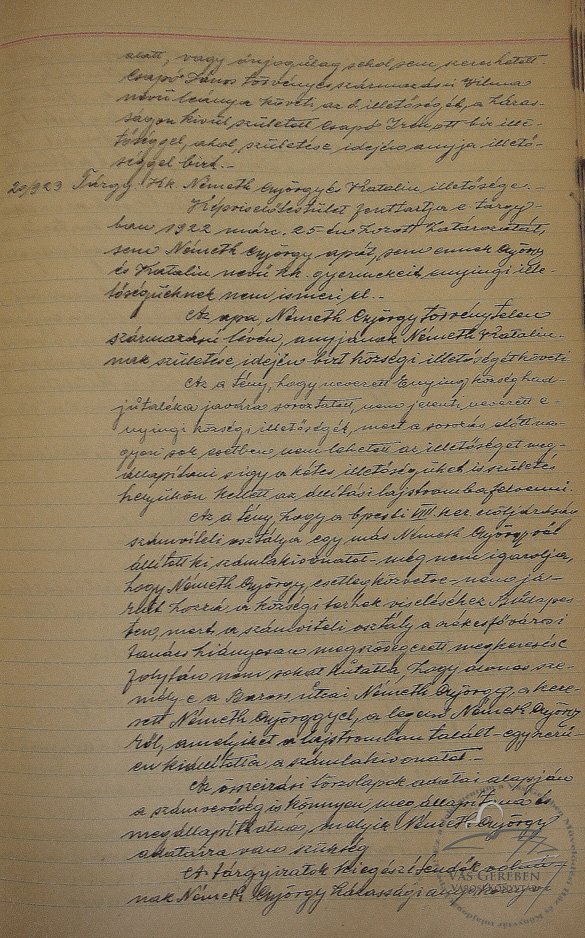 alatt, vagy önjogúlag sehol sem szerezhetett
Csapó János törvényes származású Vilma
nevű leánya követi az ő illetőségét, a házas-
ságon kívül született Csapó Irén ott bír ille-
tőséggel, ahol születése idején anyja illető-
séggel bírt.-
20/923 Tárgy: Kk. Németh György és Katalin illetősége.-
Képviselőtestület fenttartja e tárgy-
ban 1922 márc. 25-én hozott határozatát,
sem Németh György apát, sem ennek György
és Katalin nevű kk. gyermekeit enyingi ille-
tőségűeknek nem ismeri el.-
Az apa, Németh György törvénytelen
származású lévén, anyjának Németh Katalin-
nak születése idején bírt községi illetőségét követi
Az a tény, hogy nevezett Enying község had-
jutaléka javára soroztatott, nem jelenti nevezett e-
nyingi községi illetőségét, mert a sorozás előtt na-
gyon sok esetben nem lehetett az illetőséget meg-
állapítani s így a kétes illetőségűeket is születési
helyükön kellett az állítási lajstromba felvenni.
Az a tény, hogy a bpesti VIII ker. előljáróság
számviteli osztálya egy más Németh Györgyről
állított ki számlakivonatot - még nem igazolja,
hogy Németh György, esetleg közvetve - nem já-
rult hozzá a községi terhek viseléséhez Budapes-
ten, mert a számviteli osztály a székesfővárosi
tanács hiányosan megszövegezett megkeresése
folytán nem sokat kutatta, hogy azonos sze-
mély-e a Baross utcai Németh György, a kere-
sett Németh Györggyel, a legelső Németh György-
ről, amelyiket a lajstromban talált - egyszerű-
en kiállította a számlakivonatot.-
Az összeírási törzslapok adatai alapján
a számvevőség is könnyen megállapítaná és
megállapíthatná, melyik Németh György
adataira van szükség.
A tárgyiratok kiegészítendők volná-
nak Németh György házassági anyakönyvi
VAS GEREBEN
VÁROSI KÖNYVTÁR